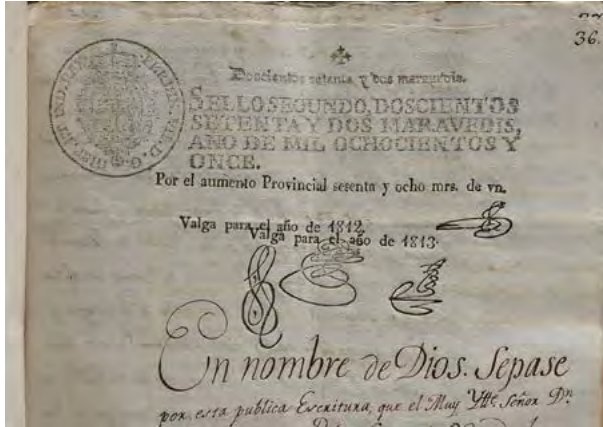 36.
Doscientos setenta y dos maravedis.
SELLO SEGUNDO, DOSCIENTOS
SETENTA Y DOS MARAVEDIS,
AÑO DE MIL OCHOCIENTOS Y
ONCE.
Por el aumento Provincial setenta y ocho mrs. de vn.
Valga para el año de 1812.
Valga para el año de 1813.
En nombre de Dios. Sepase
por esta publica Escritura, que el Muy Ytte. Señor Dn.